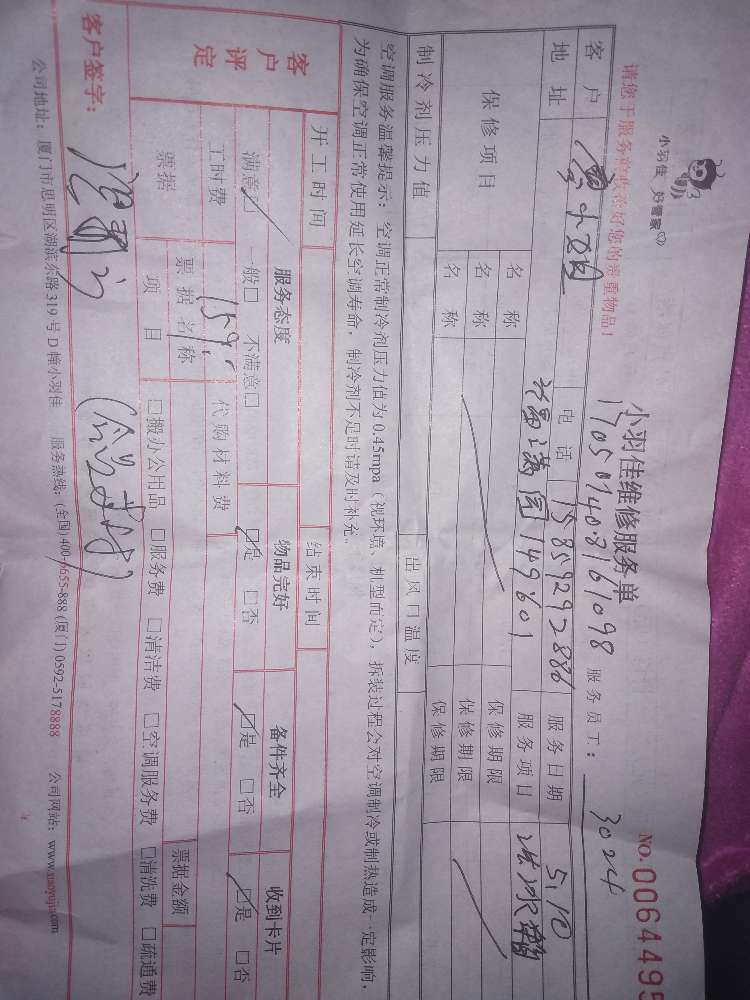 小羽佳 好管家
请您于服务前收好您的贵重物品!
小羽佳维修服务单
NO.0064495
170501408161098 服务员工: 3024
客户 电话 15859292886 服务日期 5.10
地址 149601 服务项目 洗冰箱
保修项目 名称 保修期限
名称 保修期限
名称 保修期限
制冷剂压力值 出风口温度
空调服务温馨提示: 空调正常制冷剂压力值为0.45mpa (视环境、机型而定), 拆装过程会对空调制冷或制热造成一定影响,
为确保空调正常使用延长空调寿命, 制冷剂不足时请及时补充。
开工时间 结束时间
客户评定 服务态度 物品完好 备件齐全 收到卡片
满意☑ 一般□ 不满意□ ☑是 □否 ☑是 □否 ☑是 □否
工时费 159 代购材料费
票据 票据名称 票据金额
项目 □搬办公用品 □服务费 □清洁费 □空调服务费 □清洗费 □疏通费
客户签字:
公司地址: 厦门市思明区湖滨东路319号D幢小羽佳 服务热线: (全国)400-6655-888 (厦门)0592-5178888 公司网站: www.xiaoyujia.com